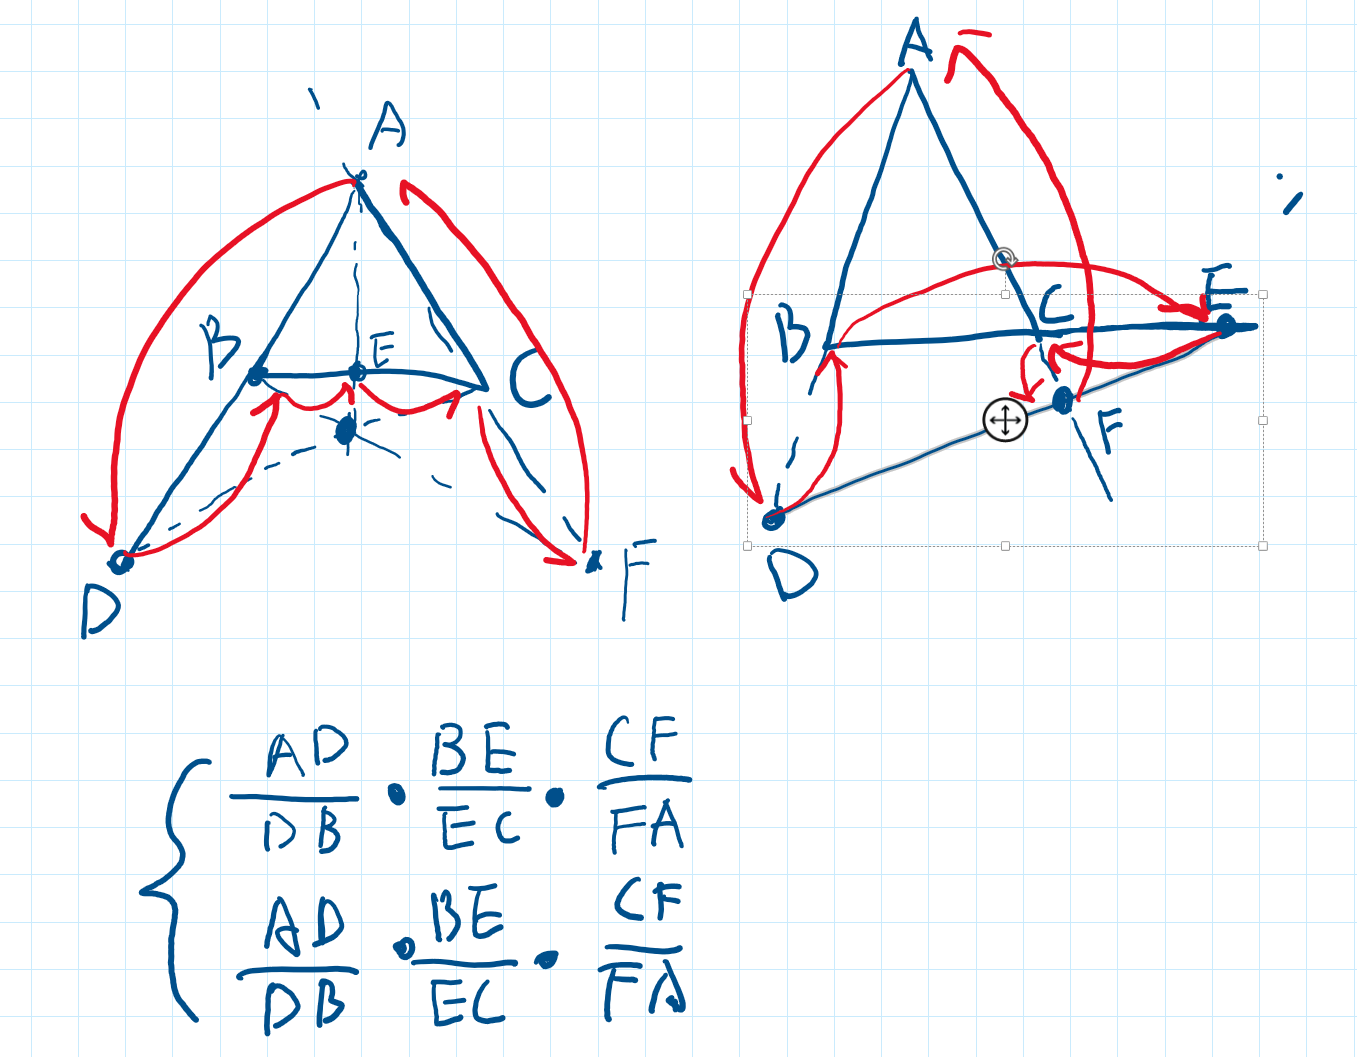 A
A
B
E
C
B
C
E
F
D
F
D
AD/DB · BE/EC · CF/FA
AD/DB · BE/EC · CF/FA